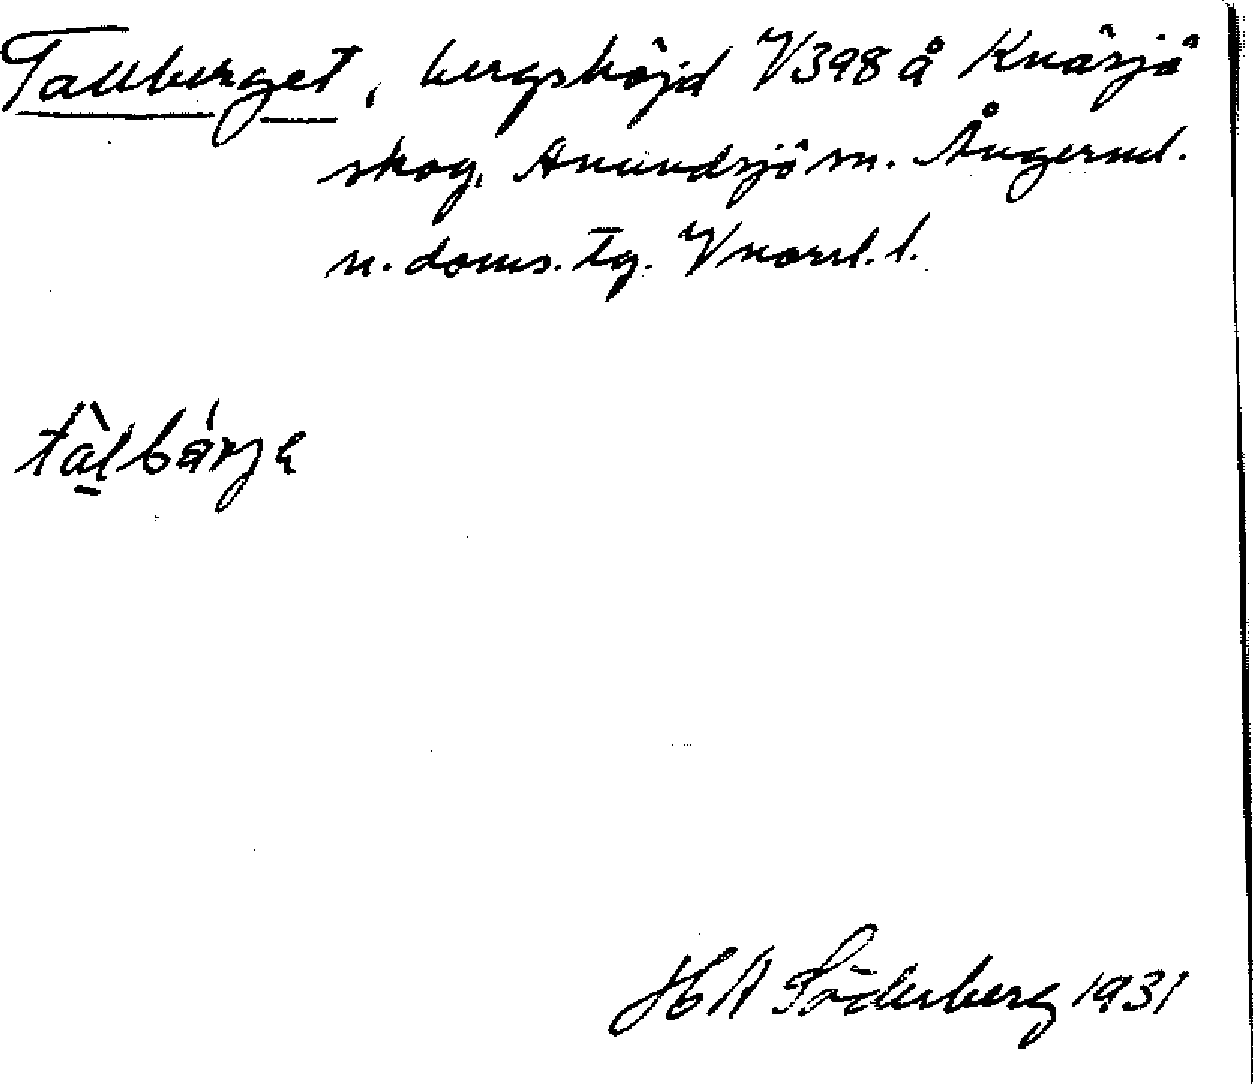 Tallberget, bergshöjd V398 å Knäsjö
skog, Anundsjö sn. Ångerml.
n. doms. tg. Vnorrl. l.
tàlbárje
HA Söderberg 1931